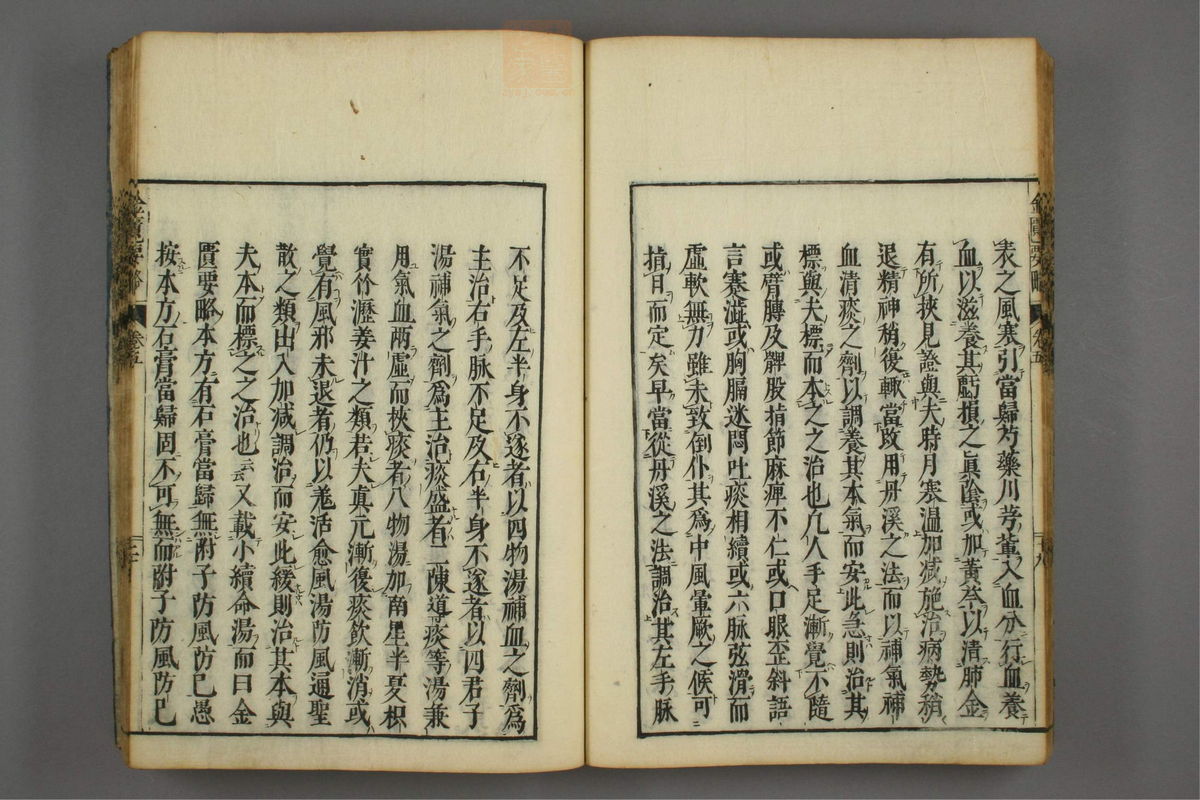 表之風寒引當歸芍藥川芎輩入血分行血養
血以滋養其虧損之眞陰或加黃芩以清肺金
有所挾見證與夫時月寒溫加減施治病勢稍
退精神稍復輙當改用丹溪之法而以補氣補
血清痰之劑以調養其本氣而安此急則治其
標與夫標而本之之治也凡人手足漸覺不隨
或臂膊及髀股指節麻痺不仁或口眼歪斜語
言蹇澁或胸膈迷悶吐痰相續或六脉弦滑而
虛軟無力雖未致倒仆其爲中風暈厥之候可
指日而定矣早當從丹溪之法調治其左手脉
不足及左半身不遂者以四物湯補血之劑爲
主治右手脉不足及右半身不遂者以四君子
湯補氣之劑爲主治痰盛者二陳導痰等湯兼
用氣血兩虛而挾痰者八物湯加南星半夏枳
實竹瀝姜汁之類若夫真元漸復痰飲漸消或
覺有風邪未退者仍以羌活愈風湯防風通聖
散之類出入加减調治而安此緩則治其本與
夫本而標之之治也云云又載小續命湯而曰金
匱要略本方有石膏當歸無附子防風防已愚
按本方石膏當歸固不可無而附子防風防已
金匱要略
卷五